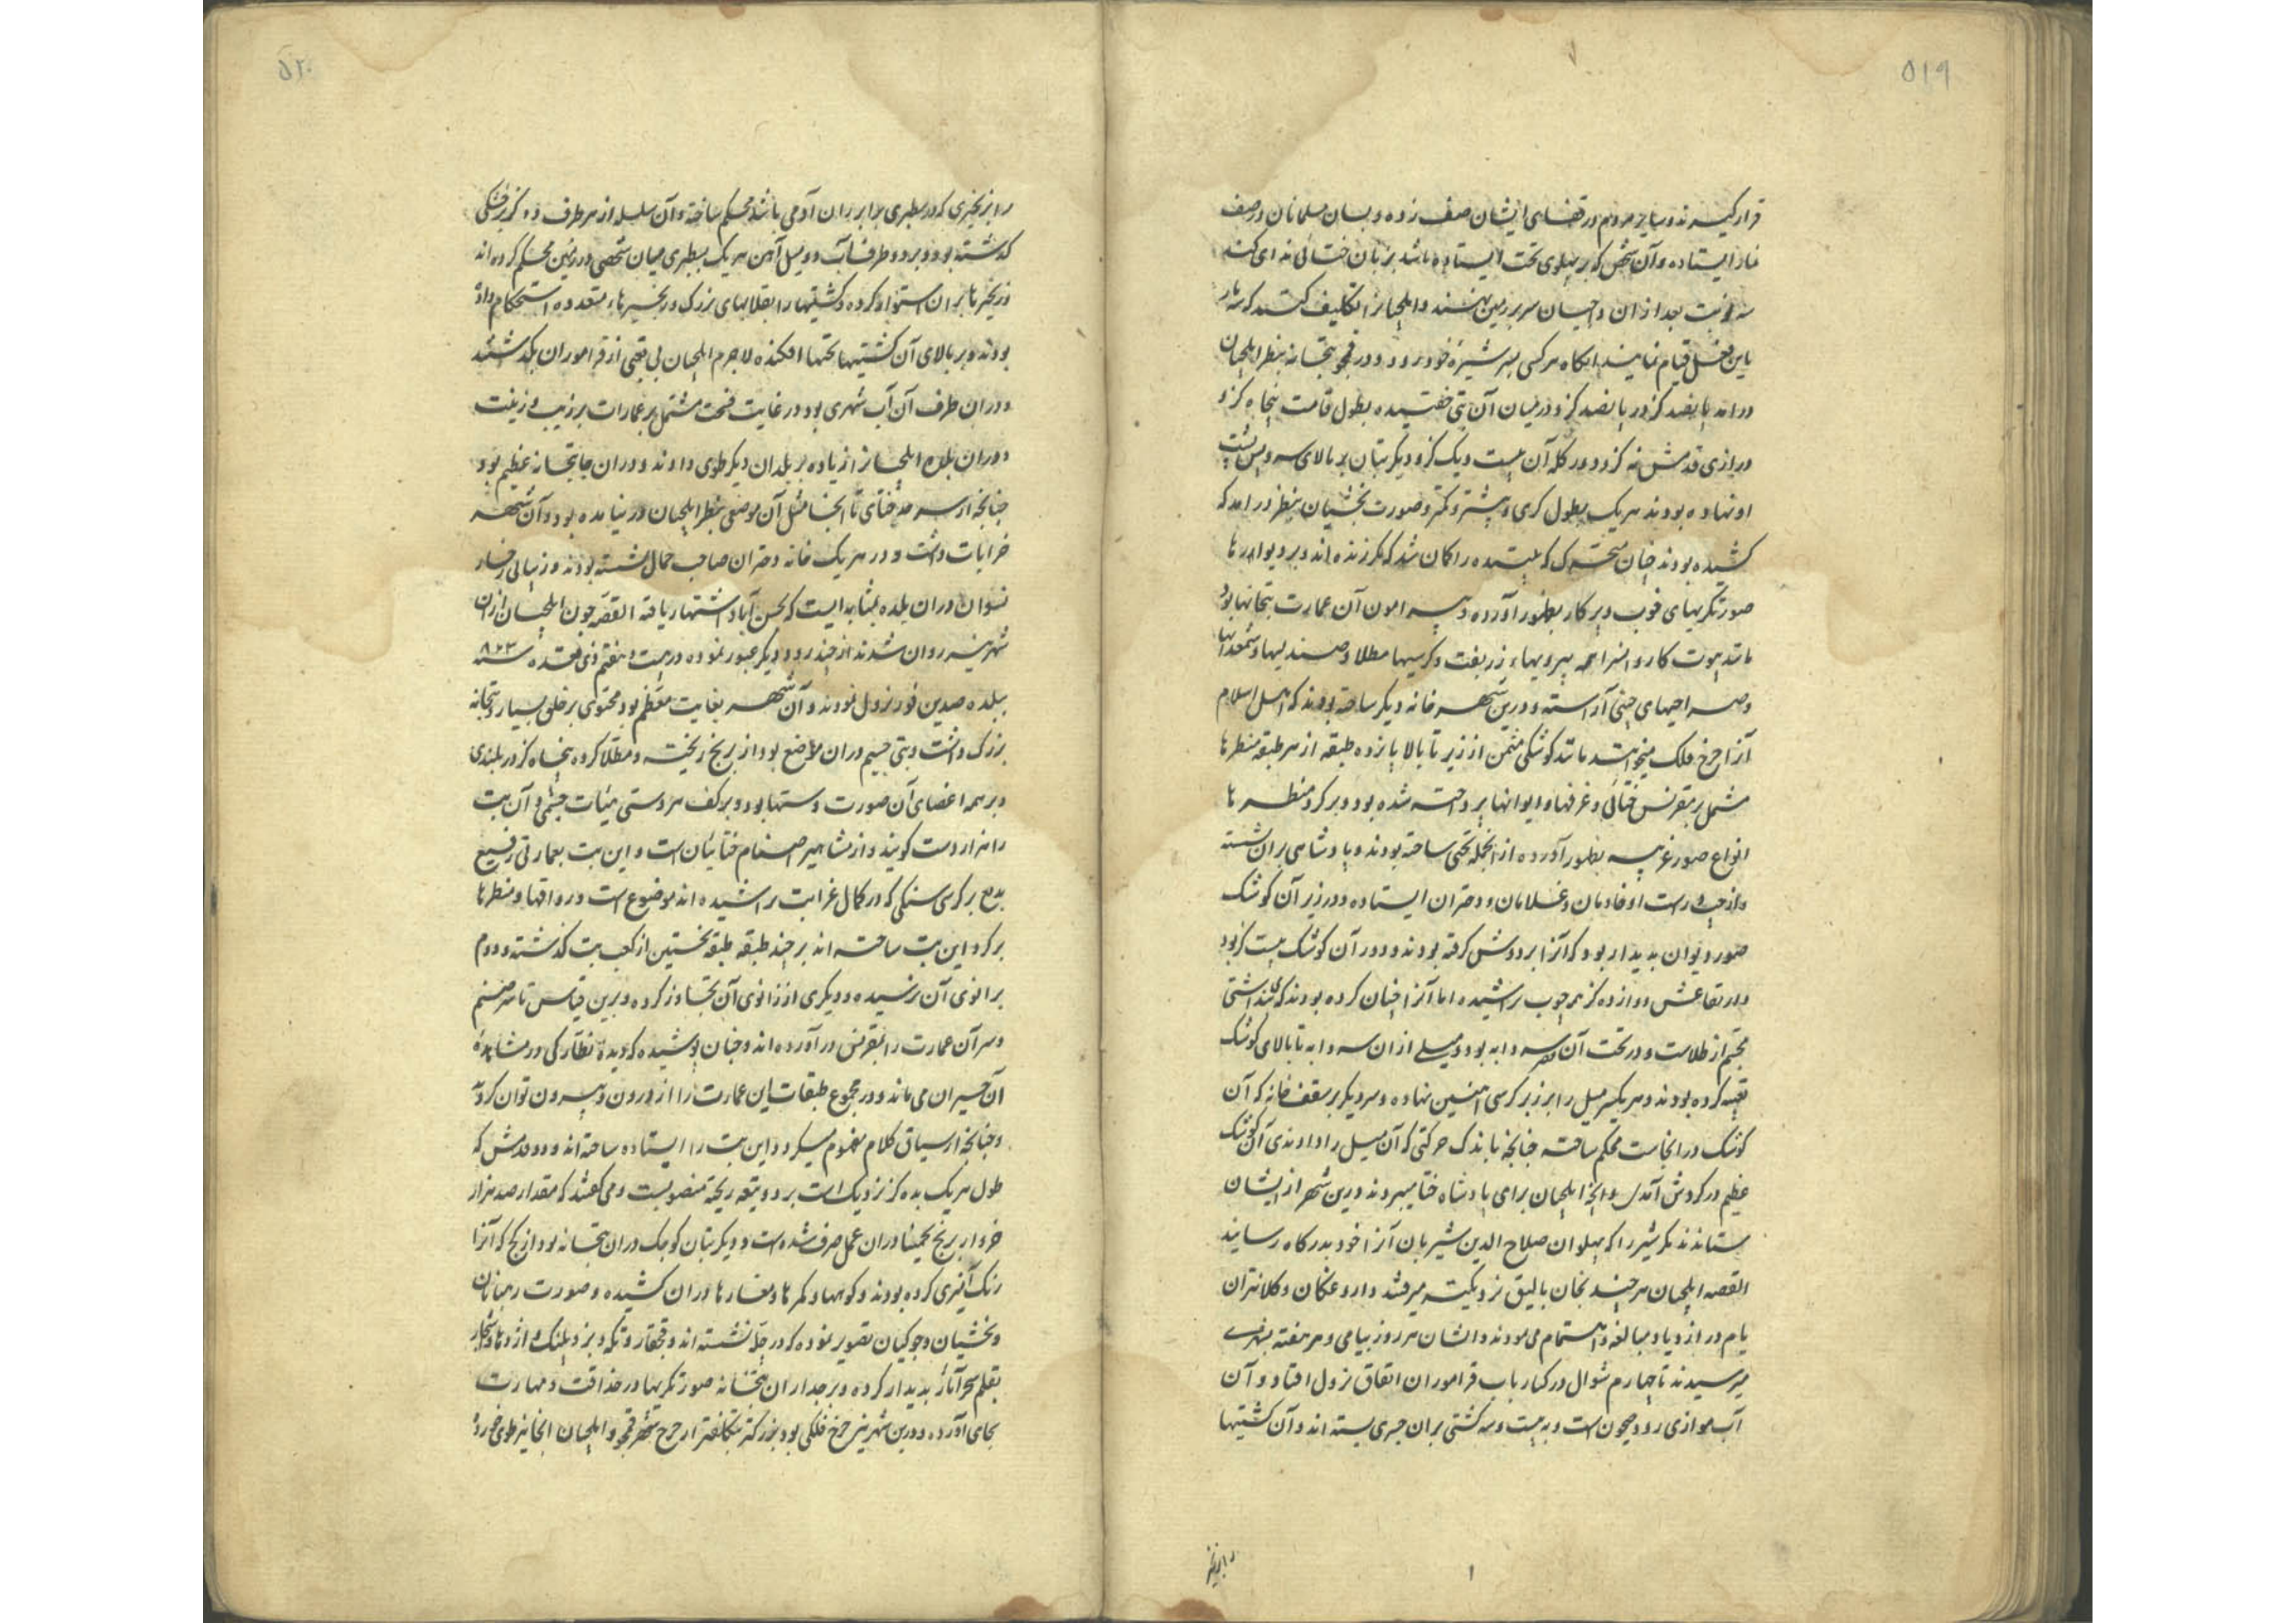 ۵۱۹
قرار گیرند و سایر مردم در قفای ایشان صف زده و بسان مسلمانان در صف
نماز ایستاده و آن شخص که بر پهلوی تخت ایستاده باشد بزبان ختائی ندای کند
سه نوبت بعد از ان داجیان سر بر زمین نهند و ایلچیانرا تکلیف کنند که سه بار
باین فعل قیام نمایند انکاه هر کسی بسر شیره خود رود و در قمجو بتخانه بنظر ایلچیان
درامد پانصد کز در پانصد کز و درمیان آن بتی خفتیده بطول قامت پنجاه کز و
درازی قدمش نه کز و دور کله آن بیست و یک کز و دیکر بتان بر بالای سر و پس پشت
او نهاده بودند هر یک بطول کزی و بیشتر و کمتر و صورت بخشیان بنظر درامد که
کشیده بودند چنان که بیننده را کمان شد که مکر زنده اند و بر دیوارها
صورتکریهای خوب و پر کار بظهور آورده و پیرامون آن عمارت بتخانها بود
مانند بیوت کاروانسرا همه بپردهاء زربفت و کرسیها مطلا و صندلیها و شمعدانها
و صراحیهای چینی آراسته و درین شهر خانه دیکر ساخته بودند که اهل اسلام
آنرا چرخ فلک میخوانند مانند کوشکی مثمن از زیر تا بالا پانزده طبقه از هر طبقه منظرها
مشتمل بر مقرنس ختائی و غرفها و ایوانها پرداخته شده بود و بر کرد منظرها
انواع صور غریبه بظهور آورده از انجمله تختی ساخته بودند و پادشاهی بران نشسته
و از چپ و راست او خادمان و غلامان و دختران ایستاده و در زیر آن کوشک
صور دیوان پدیدار بود که آنرا بر دوش کرفته بودند و دور آن کوشک بیست کز بود
و ارتفاعش دوازده کز همه چوب تراشیده اما آنرا چنان کرده بودند که پنداشتی
مجسم از طلاست و در تحت آن قصر سردابه بود و میلی از ان سردابه تا بالای کوشک
تعبیه کرده بودند و هر یکسر میل را بر زبر کرسی آهنین نهاده و سر دیکر بر سقف خانه که آن
کوشک در انجاست محکم ساخته چنانچه باندک حرکتی که آن میل را دادندی آن کوشک
عظیم در کردش آمدی و انچه ایلچیان برای پادشاه ختا میبردند درین شهر از ایشان
ستاندند مکر شیر را که پهلوان صلاح الدین شیربان آنرا خود بدرکاه رسانید
القصه ایلچیان هر چند بخان بالیق نزدیکتر میرفتند داروغکان و کلانتران
یام در ازدیاد مبالغه و اهتمام می نمودند و ایشان هر روز بیامی و هر هفته بشهری
میرسیدند تا چهارم شوال در کنار باب قراموران اتفاق نزول افتاد و آن
آب موازی رود جیحون است و به بیست و سه کشتی بران جسری بسته اند و آن کشتیها
را بزنجیر
۵۲۰
را بزنجیری که در سطبری برابر ران آدمی باشد محکم ساخته و آن سلسله از هر طرف ده کز بر خشکی
کذشته بود و بر دو طرف آب دو میل آهن هر یک بسطبری میان شخصی در زمین محکم کرده اند
و زنجیرها بران استوار کرده و کشتیها را بقلابهای بزرک و زنجیرهاء متعدده استحکام داده
بودند و بر بالای آن کشتیها تختها افکنده لاجرم ایلچیان بی تعبی از قراموران بکذشتند
و دران طرف آن آب شهری بود در غایت فسحت مشتمل بر عمارات بر زیب و زینت
و دران بلده ایلچیانرا زیاده بر بلدان دیکر طوی دادند و دران جا بتخانه عظیم بود
چنانچه از سرحد ختای تا انجا مثل آن موضعی بنظر ایلچیان در نیامده بود و آن شهر سه
خرابات داشت و در هر یک خانه دختران صاحب جمال نشسته بودند و زیبائی رخسار
نسوان دران بلده بمثابه ایست که بحسن آباد اشتهار یافته القصه چون ایلچیان از ان
شهر نیز روان شدند از چند رود دیکر عبور نموده در بیست و هفتم ذی قعده سنه ۸۲۳
ببلده صدین فور نزول نمودند و آن شهر بغایت معظم بود محتوی بر خلقی بسیار و بتخانه
بزرک داشت و بتی جسیم دران مواضع بود از برنج ریخته و مطلا کرده پنجاه کز در بلندی
و بر همه اعضای آن صورت دستها بود و بر کف هر دستی هیئات چشمی و آن بت
را هزار دست کویند و از مشاهیر اصنام ختائیان است و این بت بعمارتی رفیع
بدیع بر کرسی سنکی که در کمال غرابت تراشیده اند موضوع است و رواقها و منظرها
بر کرد این بت ساخته اند بر چند طبقه طبقه نخستین از کعب بت کذشته و دوم
بزانوی آن نرسیده و دیکری از زانوی آن تجاوز کرده و برین قیاس تا سر صنم
و سر آن عمارت را بمقرنس در آورده اند و چنان پوشیده که دیده نظارکی در مشاهده
آن حیران می ماند و در مجموع طبقات این عمارت را از درون و بیرون توان کردید
و چنانچه از سیاق کلام مفهوم میکردد این بت را ایستاده ساخته اند و دو قدمش که
طول هر یک بده کز نزدیک است بر دو ریخته منصوبست و می کفتند که مقدار صد هزار
خروار برنج تخمینا دران عمل صرف شده است و دیکر بتان کوچک دران بتخانه بود از کچ که آنرا
رنک آمیزی کرده بودند و کوهها و کمرها و مغارها دران کشیده و صورت رهبانان
و بخشیان و جوکیان تصویر نموده که در چله نشسته اند و قچقار و تکه و ببر و پلنک و اژدها و اشجار
بقلم سحر آثار پدیدار کرده و بر جداران بتخانه صورتکریها در حذاقت و مهارت
بجای آورده و درین شهر نیز چرخ فلکی بود بزرکتر و بتکلفتر از چرخ شهر قمجو و ایلچیان انجا نیز طوی خورده